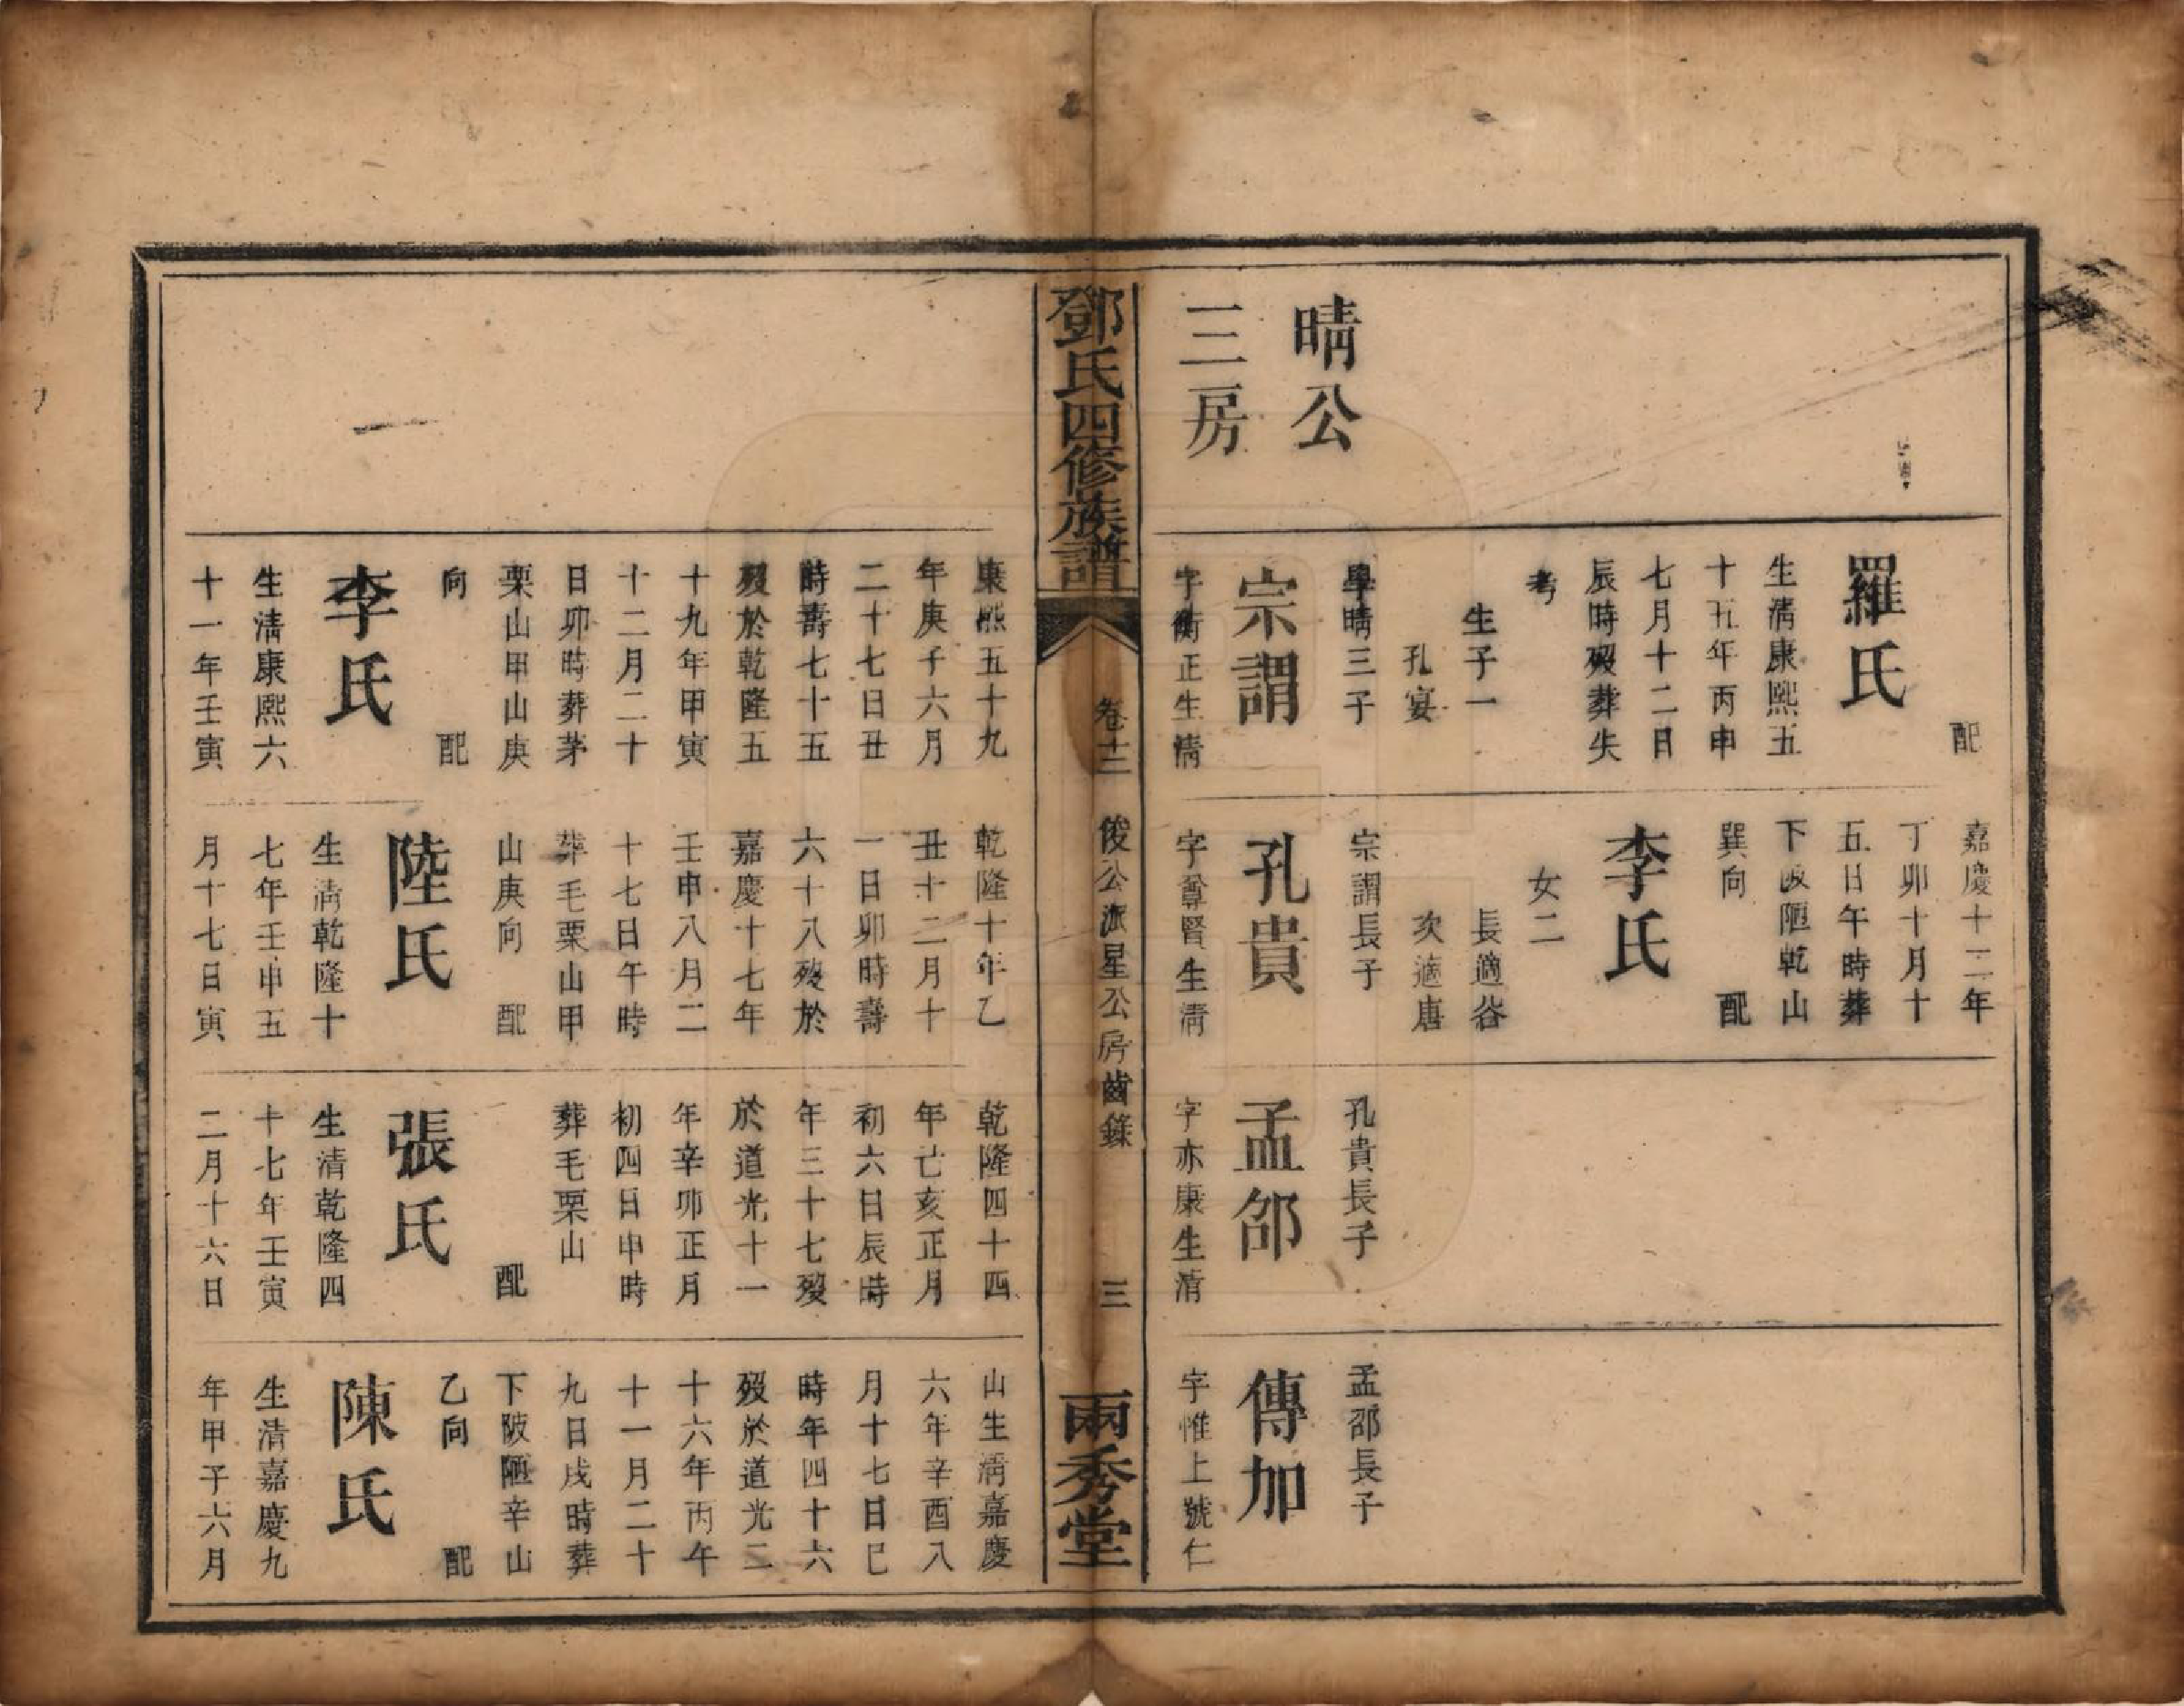 晴公
三房
配
羅氏
生清康熙五
十五年丙申
七月十二日
辰時歿葬失
考
生子一
孔宴
學晴三子
宗謂
字衡正生清
嘉慶十二年
丁卯十月十
五日午時葬
下陂陋乾山
巽向 配
李氏
女二
長適谷
次適唐
宗謂長子
孔貴
字尊賢生清
孔貴長子
孟邵
字亦康生清
孟邵長子
傳加
字惟上號仁
鄧氏四修族譜
卷十二 俊公派星公房齒錄 三
兩秀堂
康熙五十九
年庚子六月
二十七日丑
時壽七十五
歿於乾隆五
十九年甲寅
十二月二十
日卯時葬茅
栗山甲山庚
向 配
李氏
生清康熙六
十一年壬寅
乾隆十年乙
丑十二月十
一日卯時壽
六十八歿於
嘉慶十七年
壬申八月二
十七日午時
葬毛栗山甲
山庚向 配
陸氏
生清乾隆十
七年壬申五
月十七日寅
乾隆四十四
年己亥正月
初六日辰時
年三十七歿
於道光十一
年辛卯正月
初四日申時
葬毛栗山
配
張氏
生清乾隆四
十七年壬寅
二月十六日
山生清嘉慶
六年辛酉八
月十七日巳
時年四十六
歿於道光二
十六年丙午
十一月二十
九日戌時葬
下陂陋辛山
乙向 配
陳氏
生清嘉慶九
年甲子六月